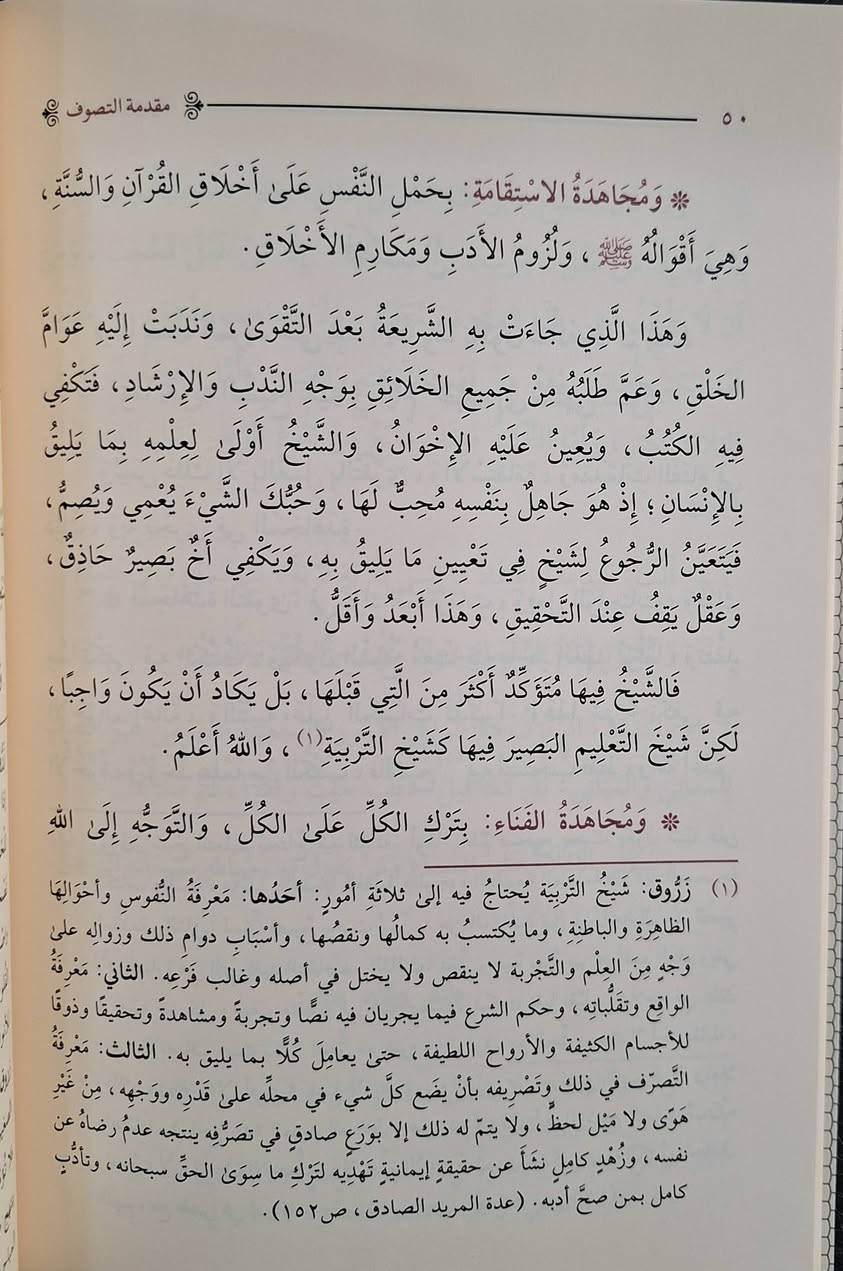 ٥٠ مقدمة التصوف
❊ وَمُجَاهَدَةُ الاسْتِقَامَةِ: بِحَمْلِ النَّفْسِ عَلَىٰ أَخْلَاقِ القُرْآنِ وَالسُّنَّةِ،
وَهِيَ أَقْوَالُهُ ﷺ، وَلُزُومُ الأَدَبِ وَمَكَارِمِ الأَخْلَاقِ.
وَهَذَا الَّذِي جَاءَتْ بِهِ الشَّرِيعَةُ بَعْدَ التَّقْوَىٰ، وَنَدَبَتْ إِلَيْهِ عَوَامَّ
الخَلْقِ، وَعَمَّ طَلَبُهُ مِنْ جَمِيعِ الخَلَائِقِ بِوَجْهِ النَّدْبِ وَالإِرْشَادِ، فَتَكْفِي
فِيهِ الكُتُبُ، وَيُعِينُ عَلَيْهِ الإِخْوَانُ، وَالشَّيْخُ أَوْلَىٰ لِعِلْمِهِ بِمَا يَلِيقُ
بِالإِنْسَانِ؛ إِذْ هُوَ جَاهِلٌ بِنَفْسِهِ مُحِبٌّ لَهَا، وَحُبُّكَ الشَّيْءَ يُعْمِي وَيُصِمُّ،
فَيَتَعَيَّنُ الرُّجُوعُ لِشَيْخٍ فِي تَعْيِينِ مَا يَلِيقُ بِهِ، وَيَكْفِي أَخٌ بَصِيرٌ حَاذِقٌ،
وَعَقْلٌ يَقِفُ عِنْدَ التَّحْقِيقِ، وَهَذَا أَبْعَدُ وَأَقَلُّ.
فَالشَّيْخُ فِيهَا مُتَؤَكِّدٌ أَكْثَرَ مِنَ الَّتِي قَبْلَهَا، بَلْ يَكَادُ أَنْ يَكُونَ وَاجِبًا،
لَكِنَّ شَيْخَ التَّعْلِيمِ البَصِيرَ فِيهَا كَشَيْخِ التَّرْبِيَةِ(١)، وَاللهُ أَعْلَمُ.
❊ وَمُجَاهَدَةُ الفَنَاءِ: بِتَرْكِ الكُلِّ عَلَىٰ الكُلِّ، وَالتَّوَجُّهِ إِلَىٰ اللهِ
(١) زَرُّوق: شَيْخُ التَّرْبِيَة يُحتاجُ فيه إلىٰ ثلاثَةِ أمُورٍ: أحَدُها: مَعْرِفَةُ النُّفوسِ وأحْوَالِهَا
الظاهِرَةِ والباطنِةِ، وما يُكتسبُ به كمالُها ونقصُها، وأسْبَابِ دوامِ ذلك وزوالِه علىٰ
وَجْهٍ مِنَ العِلْم والتَّجْربة لا ينقص ولا يختل في أصله وغالب فَرْعِه. الثاني: مَعْرِفَةُ
الواقِعِ وتقلُّباتِه، وحكم الشرع فيما يجريان فيه نصًّا وتجربةً ومشاهدةً وتحقيقًا وذوقًا
للأجسام الكثيفة والأرواح اللطيفة، حتىٰ يعامِلَ كُلًّا بما يليق به. الثالث: مَعْرِفَةُ
التَّصرّف في ذلك وتَصْرِيفه بأنْ يضَع كلَّ شيء في محلِّه علىٰ قَدْرِه ووَجْهِه، مِنْ غَيْرِ
هَوًى ولا مَيْل لحظّ، ولا يتمّ له ذلك إلا بوَرَعٍ صادقٍ في تصَرُّفِه ينتجه عدمُ رضاهُ عن
نفسه، وزُهْدٍ كامِلٍ نشَأَ عن حقيقةٍ إيمانيةٍ تَهْدِيه لتَرْكِ ما سِوَىٰ الحقِّ سبحانه، وتأدُّبٍ
كامل بمن صحَّ أدبه. (عدة المريد الصادق، ص١٥٢).